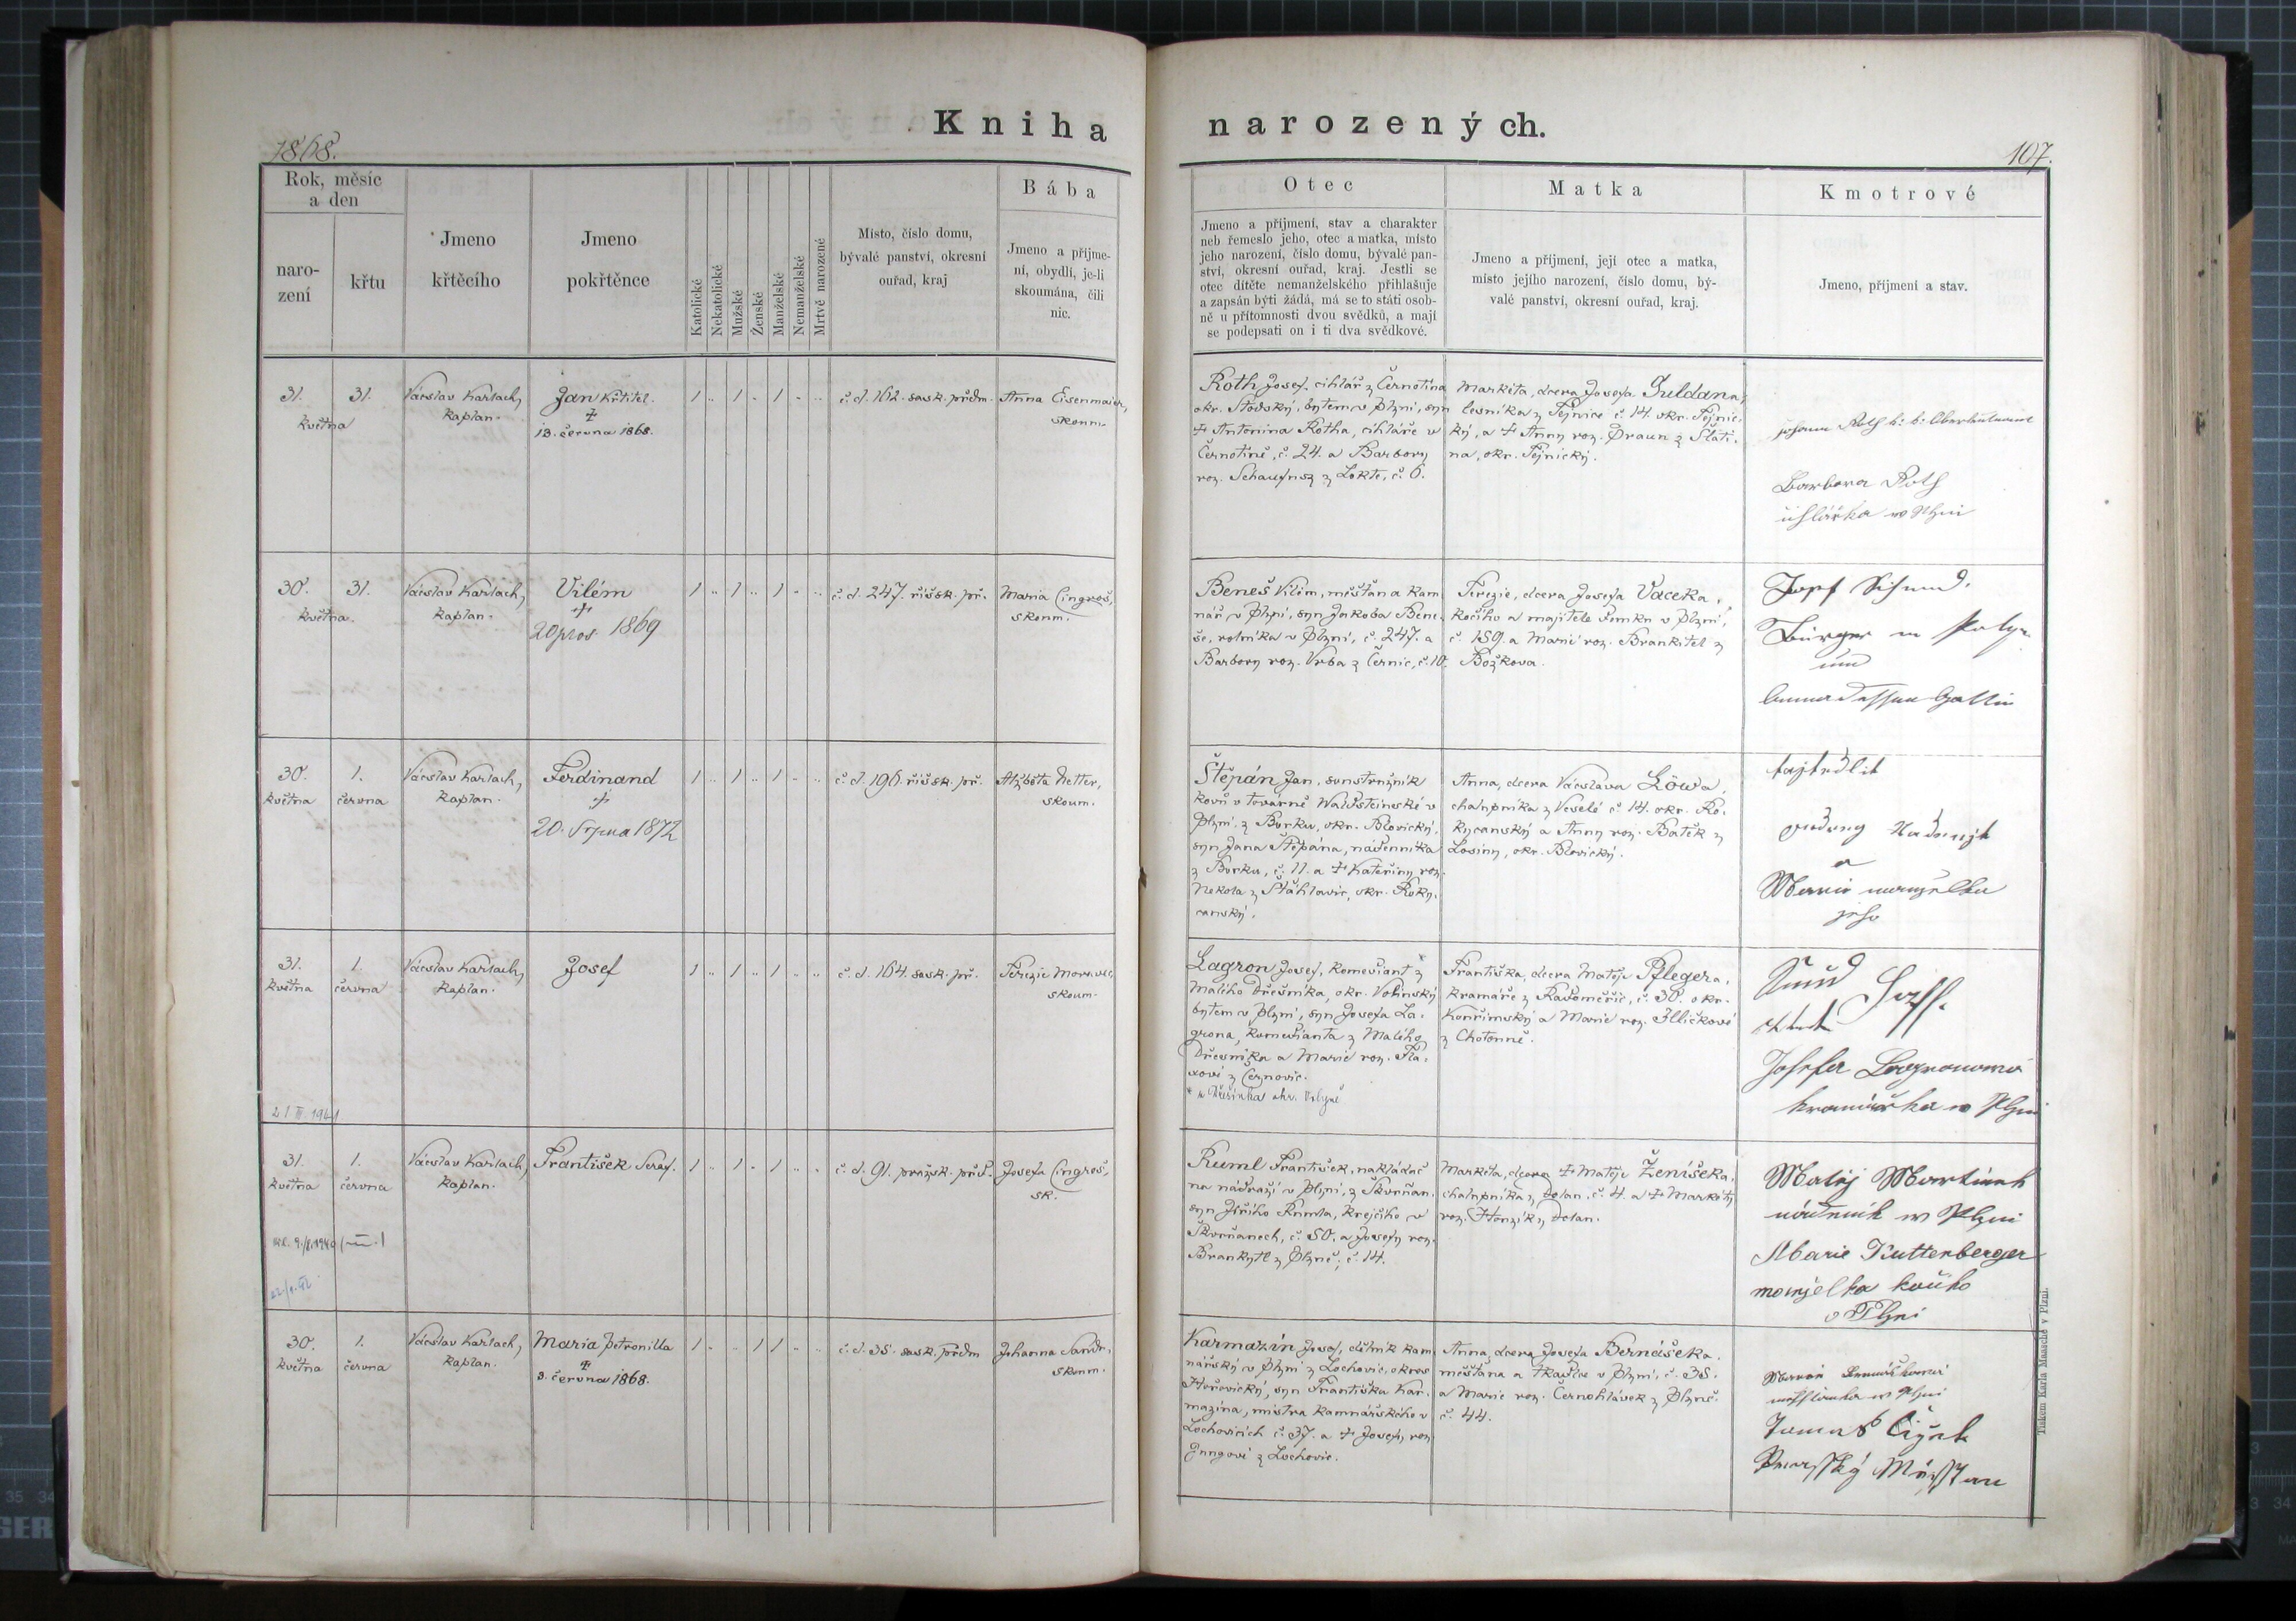 Kniha
narozených.
1868.
107.
Rok, měsíc
a den
naro-
zení
křtu
Jmeno
křtěcího
Jmeno
pokřtěnce
Katolické
Nekatolické
Mužské
Ženské
Manželské
Nemanželské
Mrtvě narozené
Místo, číslo domu,
bývalé panství, okresní
ouřad, kraj
Bába
Jmeno a příjme-
ní, obydlí, je-li
skoumána, čili
nic.
Otec
Jmeno a příjmení, stav a charakter
neb řemeslo jeho, otec a matka, místo
jeho narození, číslo domu, bývalé pan-
ství, okresní ouřad, kraj. Jestli se
otec dítěte nemanželského přihlašuje
a zapsán býti žádá, má se to státi osob-
ně u přítomnosti dvou svědků, a mají
se podepsati on i ti dva svědkové.
Matka
Jmeno a příjmení, její otec a matka,
místo jejího narození, číslo domu, bý-
valé panství, okresní ouřad, kraj.
Kmotrové
Jmeno, příjmení a stav.
31. 31.
května
Václav Karlach,
kaplan.
Jan Křtitel.
‡
13. června 1868.
1 .. 1 .. 1 .. ..
č. d. 162. sask. předm.
Anna Eisenmaier,
skoum.
Roth Josef, cihlář z Černotína
okr. Stodský, bytem v Plzni, syn
‡ Antonína Rotha, cihláře v
Černotíně, č. 24. a Barbory
roz. z Lokte, č. 6.
Markéta, dcera Josefa Guldana,
lesníka z Tejnice č. 14. okr. Tejnic-
ký, a ‡ Anny roz. Braun z Slati-
na, okr. Tejnický.
Johann Roth k: k: Oberlieutenant
Barbora Roth
cihlářka w Plzni
30. 31.
května.
Václav Karlach,
kaplan.
Vilém
‡
20 pros. 1869
1 .. 1 .. 1 .. ..
č. d. 247. říšsk. př.
Maria Cingroš,
skoum.
Beneš Vilém, měšťan a kam
nář v Plzni, syn Jakoba Bene-
še, rolníka v Plzni, č. 247. a
Barbory roz. Vrba z Černic, č. 10.
Terezie, dcera Josefa Vaceka,
kočího a majitele domku v Plzni,
č. 159. a Marie roz. Brankitel z
Božkova.
Josef
Bürger in
und
Anna dessen Gattin
30. 1.
května června
Václav Karlach,
kaplan.
Ferdinand
‡
20. Srpna 1872
1 .. 1 .. 1 .. ..
č. d. 196. říšsk. př.
Alžběta Netter,
skoum.
Štěpán Jan, soustružník
kovů v továrně Waldsteinské v
Plzni, z Borku, okr. Blovický,
syn Jana Štěpána, nádenníka
z Borku, č. 11. a ‡ Kateřiny roz.
Nekola z Šťáhlavic, okr. Roky-
canský.
Anna, dcera Václava Löwa,
chalupníka z Veselé č. 14. okr. Ro-
kycanský a Anny roz. Batěk z
Losiny, okr. Blovický.
a
Marie manželka
jeho
31. 1.
května června
Václav Karlach,
kaplan.
Josef
1 .. 1 .. 1 .. ..
č. d. 164. sask. př.
Terezie Moravec,
skoum.
Lagron Josef, komediant z *
Malého Dřešníka, okr. Volinský
bytem v Plzni, syn Josefa La-
grona, komedianta z Malého
Dřevníka a Marie roz. Fla-
xové z Černovic.
Františka, dcera Matěje Pflegera,
kramáře z Radoměřic, č. 30. okr.
Kouřimský a Marie roz. Illičkové
z Chotouně.
Josefa Lagronowa
kramářka w Plzni
21 III. 1941
31. 1.
května června
Václav Karlach,
kaplan.
František Seraf.
1 .. 1 .. 1 .. ..
č. d. 91. pražsk. před.
Josefa Cingroš,
sk.
Ruml František, nakladač
na nádraží v Plzni, z Skvrňan,
syn Jiřího Rumla, krejčího v
Skvrňanech, č. 50. a Josefy roz.
Brankytl z Plzně, č. 14.
Markéta, dcera ‡ Matěje Ženíšeka,
chalupníka z Dolan, č. 4. a ‡ Markéty
roz. Honzík z Dolan.
Matěj Martinek
nádeník w Plzni
Marie Kuttenberger
manželka kočího
v Plzni
30. 1.
května června
Václav Karlach,
kaplan.
Maria Petronilla
‡
3. června 1868.
1 .. .. 1 1 .. ..
č. d. 35. sask. předm.
Johanna Sandr,
skoum.
Karmazín Josef, dělník kam
nářský v Plzni z Lochovic, okres
Hořovický, syn Františka Kar-
mazína, mistra kamnářského v
Lochovicích č. 37. a ‡ Josefy roz.
Jungové z Lochovic.
Anna, dcera Josefa Bernášeka,
měšťana a tkadlce v Plzni, č. 35.
a Marie roz. Černohlávek z Plzně.
č. 44.
Tomas Čižek
Tiskem Karla Maasche v Plzni.